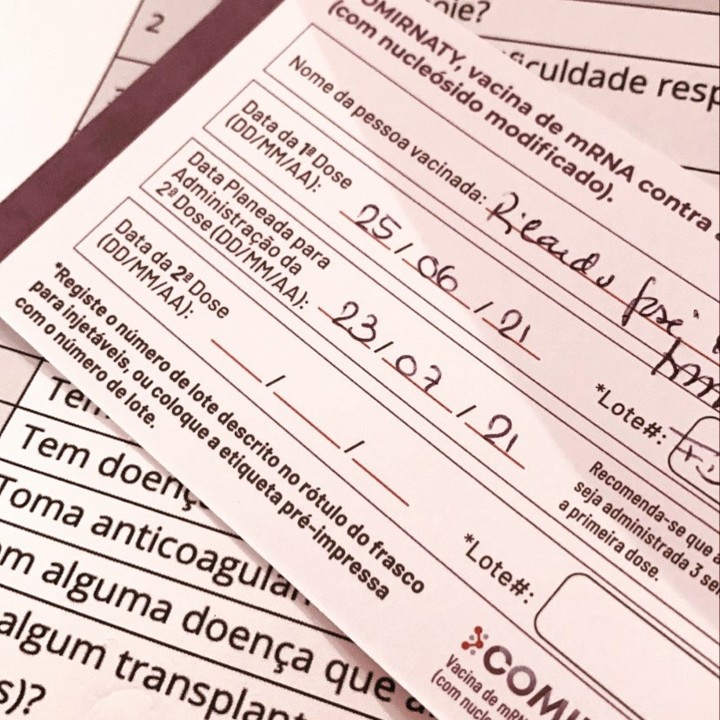 2
oje?
ficuldade resp
OMIRNATY, vacina de mRNA contra a
(com nucleósido modificado).
Nome da pessoa vacinada: Ricardo José
Data da 1ª Dose
(DD/MM/AA): 25/06/21
*Lote#:
Data Planeada para
Administração da
2ª Dose (DD/MM/AA): 23/07/21
Recomenda-se que a
seja administrada 3 se
a primeira dose.
Data da 2ª Dose
(DD/MM/AA): / /
*Lote#:
*Registe o número de lote descrito no rótulo do frasco
para injetáveis, ou coloque a etiqueta pré-impressa
com o número de lote.
COMI
Vacina de mRN
(com nucle
Tem
Tem doenç
Toma anticoagulan
m alguma doença que a
algum transplant
s)?